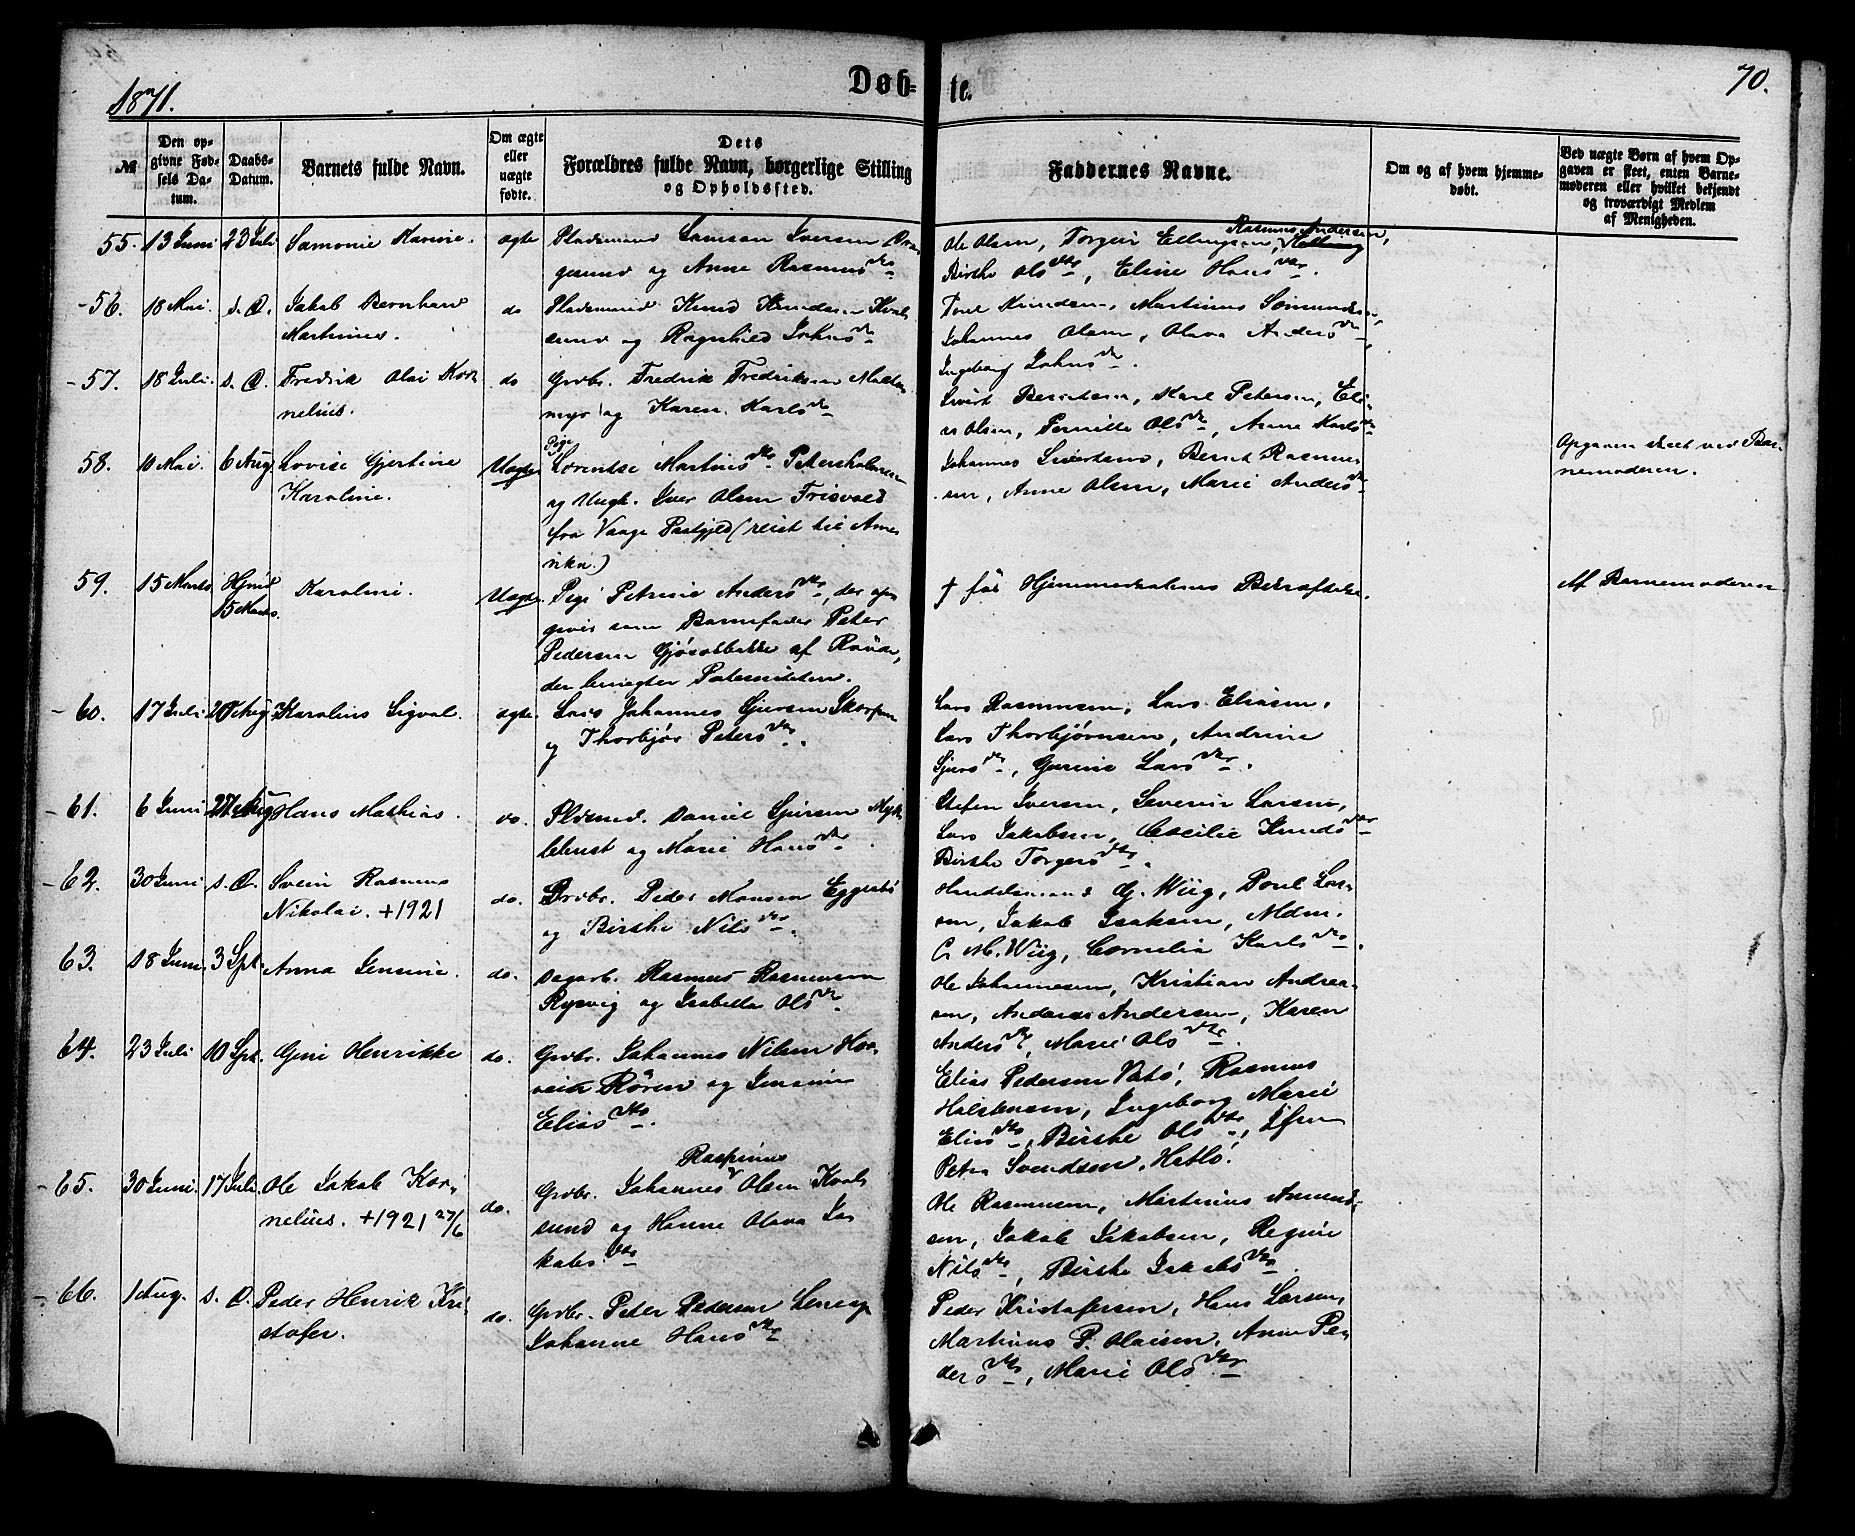 1871.
Døb-
te.
70.
№
Den op-
givne Fød-
sels Da-
tum.
Daabs-
Datum.
Barnets fulde Navn.
Om ægte
eller
uægte
fødte.
Dets
Forældres fulde Navn, borgerlige Stilling
og Opholdssted.
Faddernes Navne.
Om og af hvem hjemme-
døbt.
Ved uægte Børn af hvem Op-
gaven er skeet, enten Barne-
moderen eller hvilket bekjendt
og troværdigt Medlem
af Menigheden.
55. 13 Juni 23 Juli ægte Pladsmand Samson Iversen
og Anne Rasmusdtr
Ole Olsen, Torgeir Ellingsen, Rasmus Andersen,
Birthe Olsdtr, Eline Hansdtr.
56. 18 Mai. s. D. Jakob Bernhard
Martinus.
do Pladsmand Knud Knudsen Kval-
sund og Ragnhild Johnsdtr
Poul Knudsen, Martinus
Johannes Olsen, Olava Andersdtr,
Ingeborg Johnsdtr.
57. 18 Juli. s. D. Fredrik Olai Kor-
nelius.
do Grdbr. Fredrik Fredriksen
myr og Karen Karlsdtr
Sivert Berntsen, Karl Petersen, Eli-
as Olsen, Pernille Olsdtr, Anne Karlsdtr
58. 10 Mai. 6 Aug. Lovise Gjertine
Karoline.
Uægte Pige
Lorentse Martinusdtr Petersholmen
og Ungk. Iver Olsen Frisvold
fra Vaage Pastgjeld (reist til Ame-
rika.)
Johannes Sivertsen, Bernt Rasmus-
sen, Anne Olsen, Marie Andersdtr
Opgaven skeet ved Bar-
nemoderen.
59. 15 Marts Hjmd
15 Marts.
Karoline.
Uægte. Pige Petrine Andersdtr, der op-
giver som Barnefader Peter
Pedersen af
der benegter Paterniteten.
† før Hjemmedaabens Bekræftelse.
Af Barnemoderen
60. 17 Juli 20 Aug. Karolius Sigval.
ægte. Johannes Sjursen
og Thorbjør Petersdtr.
Lars Rasmussen, Lars Eliasen,
Lars Thorbjørnsen, Andrine
Sjursdtr, Gurine Larsdtr.
61. 6 Juni 27 Aug Hans Mathias.
do. Pldsmd. Daniel Sjursen Myk-
lebust og Marie Hansdtr.
Stefen Iversen, Severin Larsen,
Lars Jakobsen, Cecilie Knudsdtr
Birthe Torgersdtr.
62. 30 Juni s. D. Svein Rasmus
Nikolai. +1921
do. Grdbr. Peder Monsen Eggesbø
og Birthe Nilsdtr.
Handelsmand G. Wiig, Poul Lar-
sen, Jakob Isaksen, Mdm.
C M. Wiig, Cornelia Karlsdtr.
63. 18 Juni 3 Spt. Anna Jensine.
do. Dagarb. Rasmus Rasmussen
Røsvig og Isabella Olsdtr.
Ole Johannesen, Kristian Andrea-
sen, Andreas Andersen, Karen
Andersdtr, Marie Olsdtr.
64. 23 Juli 10 Spt. Gine Henrikke
do. Grdbr. Johannes Nilsen
Røren og Jensine
Eliasdtr.
Elias Pedersen Vatø, Rasmus
Holstensen, Ingeborg Marie
Eliasdtr, Birthe Olsdtr,
Petra Svendsen, Hatlø.
65. 30 Juni. 17 Juli. Ole Jakob Kor-
nelius. +1921 27/6
do. Grdbr. Johannes Raspinus Olsen Kval-
sund og Hanne Olava Ja-
kobsdtr
Ole Rasmussen, Martinus Amund-
sen, Jakob Jakobsen, Regine
Nilsdtr, Birthe Jakobsdtr.
66. 1 Aug. s. D. Peder Henrik Kri-
stofer.
do. Grdbr. Peter Pedersen
Johanne Hansdtr
Peder Kristofersen, Hans Larsen,
Martinus P. Olaisen, Anne Pe-
dersdtr, Marie Olsdtr